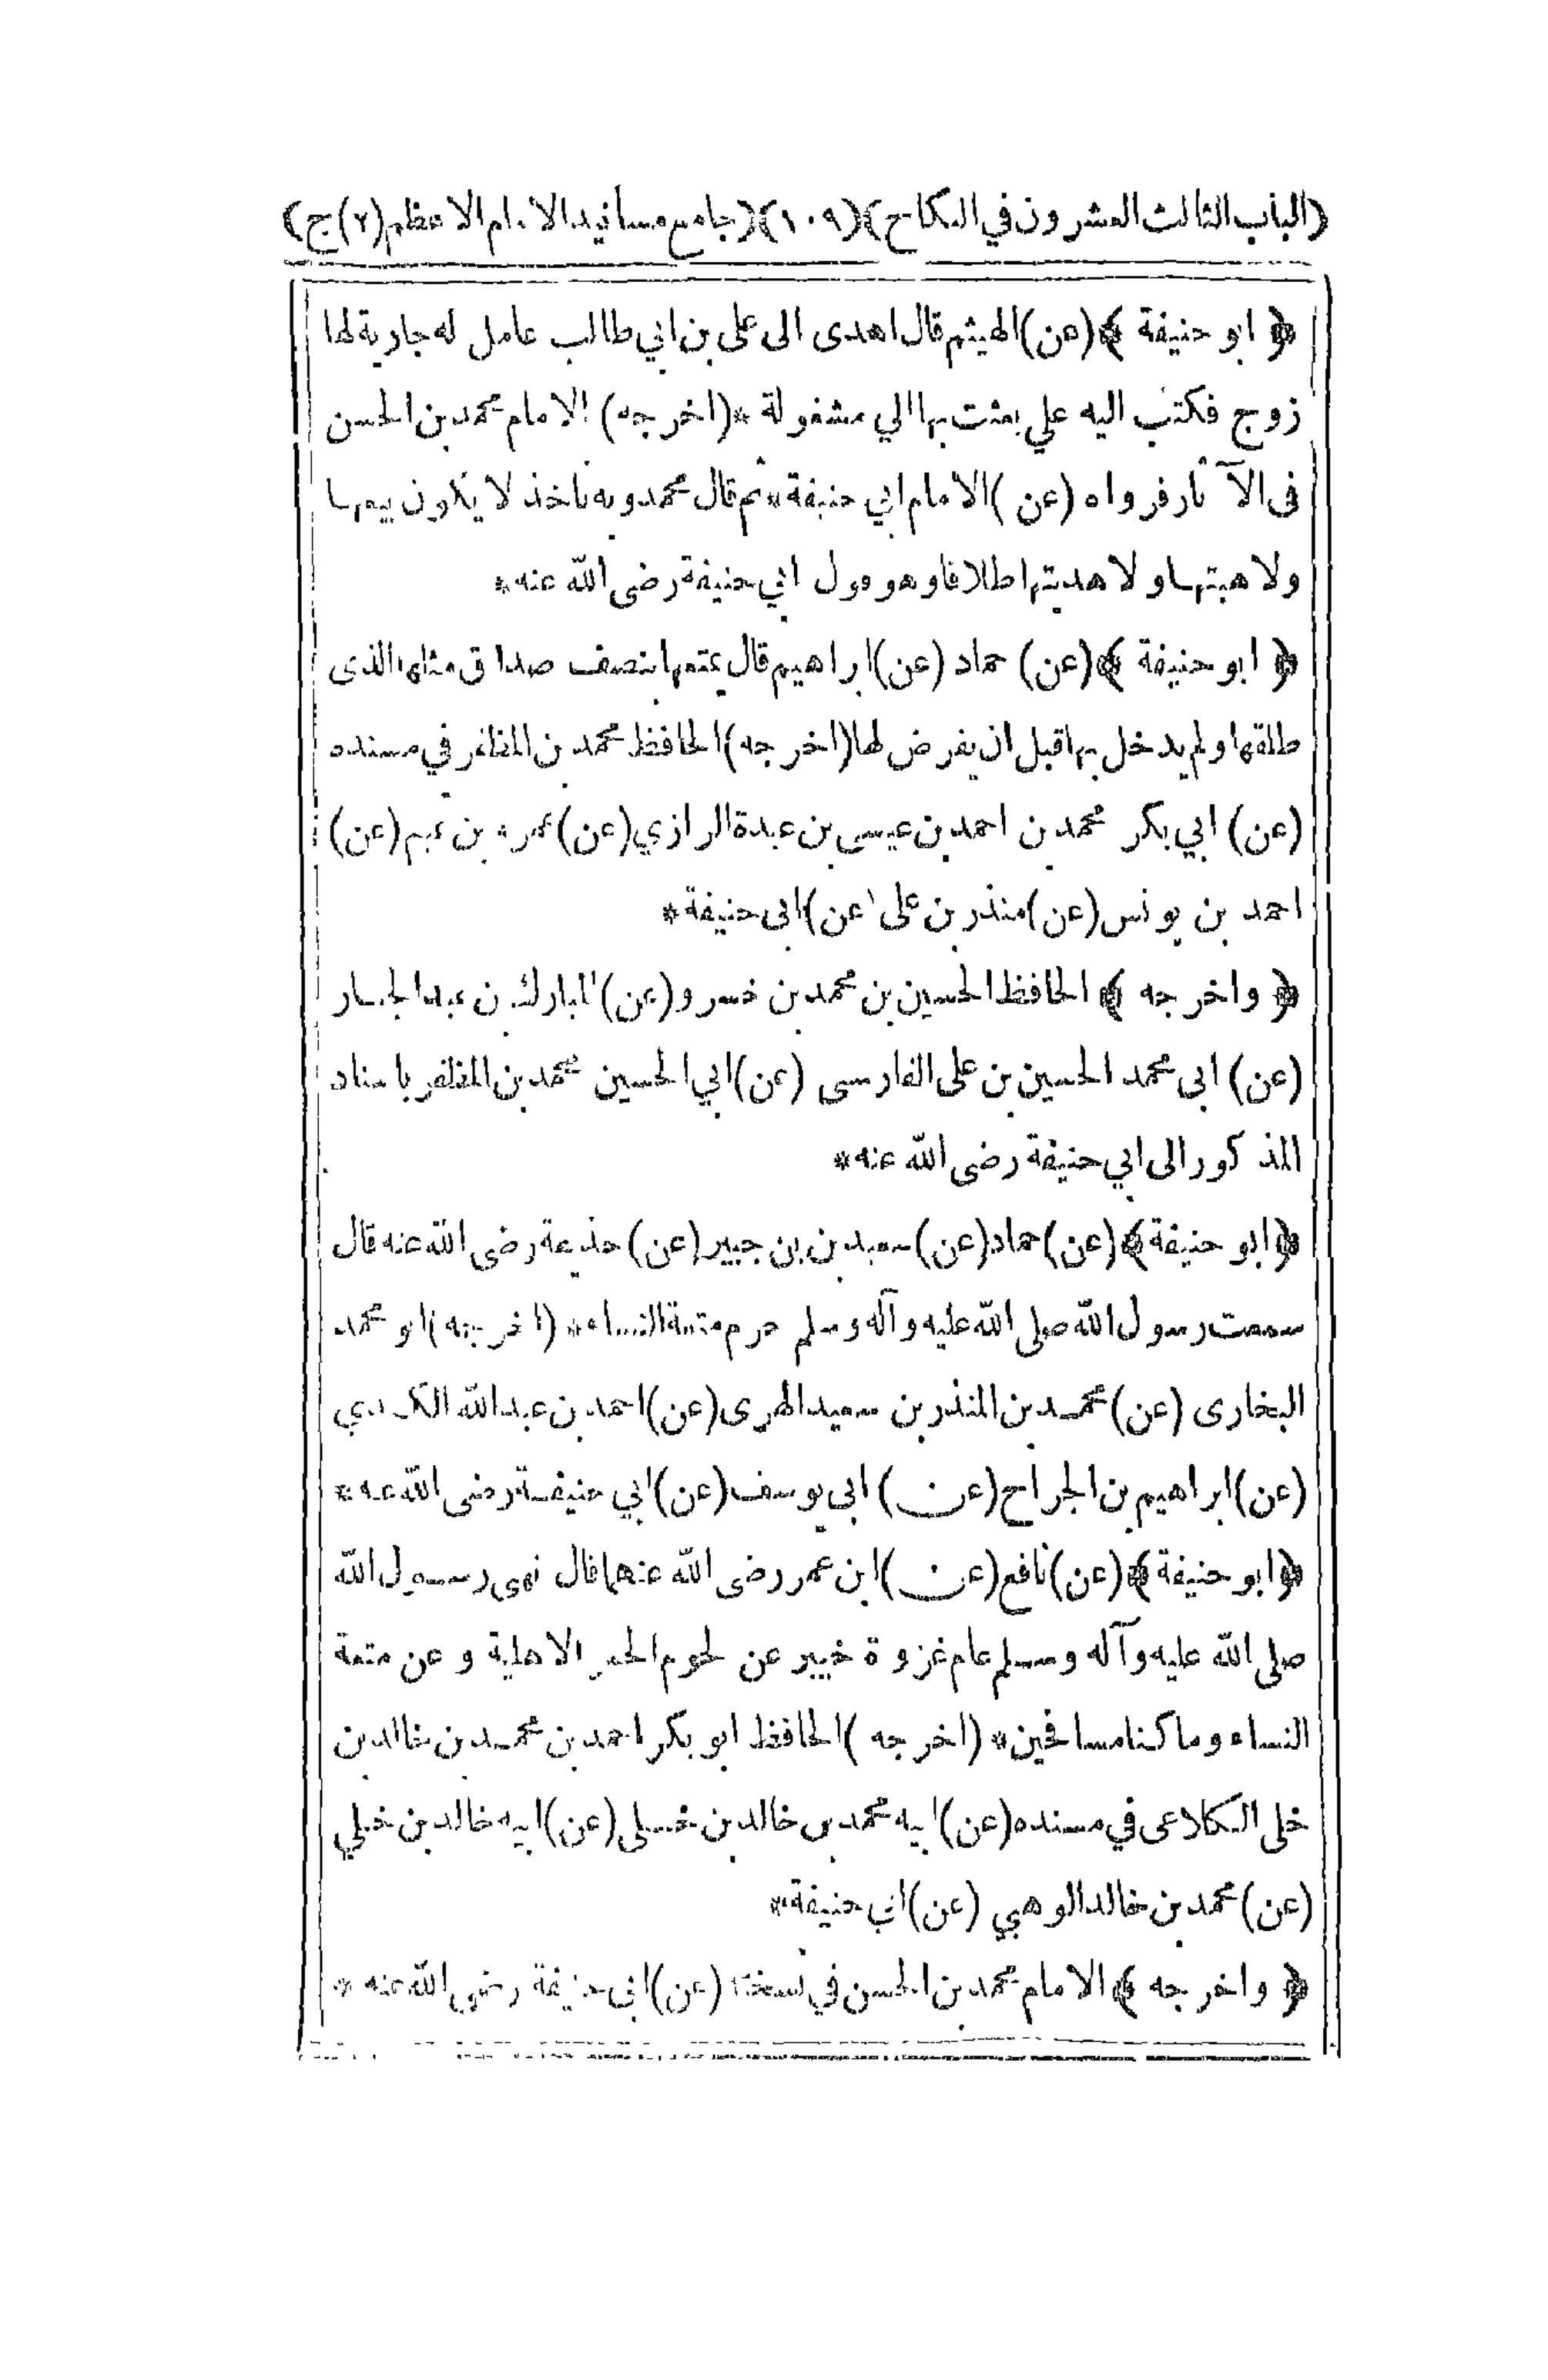 (الباب الثالث العشرون في النكاح) (١٠٩) (جامع مسانيد الامام الاعظم (٢) ج)
﴿ ابو حنيفة ﴾ (عن) الهيثم قال اهدى الى على بن ابي طالب عامل له جارية لها
زوج فكتب اليه علي بعثت بها الي مشغولة * (اخرجه) الامام محمد بن الحسن
فى الآثار فرواه (عن) الامام ابي حنيفة * ثم قال محمد وبه ناخذ لا يكون بيعها
ولا هبتها ولا هديتها طلاقا وهو قول ابي حنيفة رضى الله عنه *
﴿ ابو حنيفة ﴾ (عن) حماد (عن) ابراهيم قال يمتعها بنصف صداق مثلها الذى
طلقها ولم يدخل بها قبل ان يفرض لها (اخرجه) الحافظ محمد بن المظفر في مسنده
(عن) ابي بكر محمد بن احمد بن عيسى بن عبدة الرازي (عن) بن تميم (عن)
احمد بن يونس (عن) منذر بن على (عن) ابى حنيفة *
﴿ واخرجه ﴾ الحافظ الحسين بن محمد بن خسرو (عن) المبارك بن عبد الجبار
(عن) ابى محمد الحسين بن على الفارسى (عن) ابي الحسين محمد بن المظفر باسناد
المذكور الى ابي حنيفة رضى الله عنه *
﴿ ابو حنيفة ﴾ (عن) حماد (عن) سعيد بن بن جبير (عن) حذيفة رضى الله عنه قال
سمعت رسول الله صلى الله عليه وآله وسلم حرم متعة النساء * (اخرجه) ابو محمد
البخارى (عن) محمد بن المنذر بن سعيد الهروى (عن) احمد بن عبد الله الكندي
(عن) ابراهيم بن الجراح (عن) ابى يوسف (عن) ابي حنيفة رضى الله عنه *
﴿ ابو حنيفة ﴾ (عن) نافع (عن) ابن عمر رضى الله عنهما قال نهى رسول الله
صلى الله عليه وآله وسلم عام غزوة خيبر عن لحوم الحمر الاهلية و عن متعة
النساء وما كنا مسافحين * (اخرجه) الحافظ ابو بكر احمد بن محمد بن خالد بن
خلى الكلاعى في مسنده (عن) ابيه محمد بن خالد بن خلى (عن) ابيه خالد بن خلي
(عن) محمد بن خالد الوهبي (عن) ابي حنيفة *
﴿ واخرجه ﴾ الامام محمد بن الحسن في نسخته (عن) ابى حنيفة رضى الله عنه *